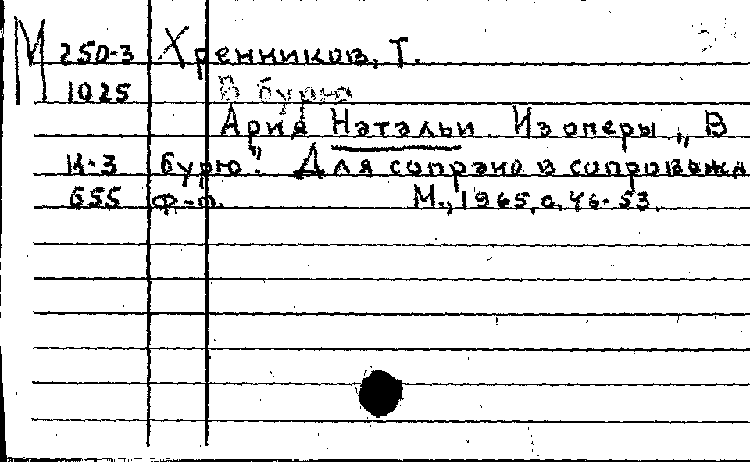 М 250-3 Хренников, Т.
1025 В бурю
Ария Натальи. Из оперы „В
К-3 бурю". Для сопрано в сопровожд
655 ф-п. М., 1965, с. 46-53.